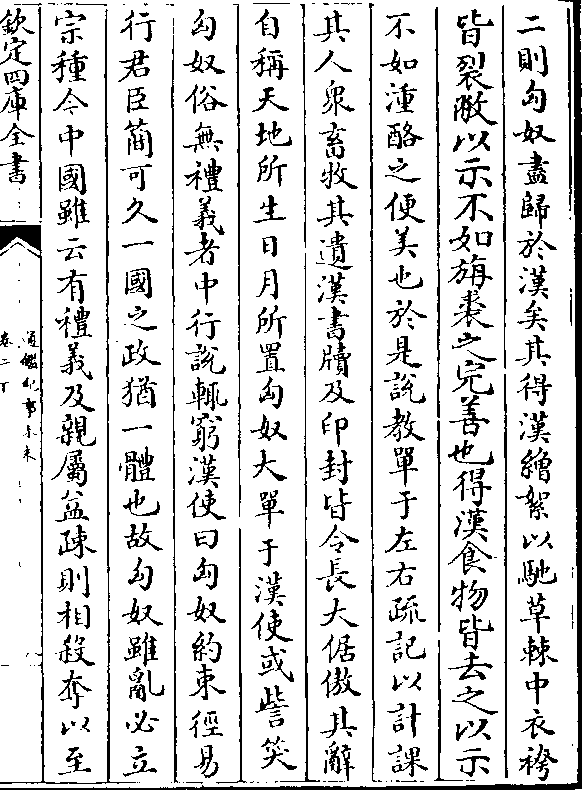 二則匈奴盡歸於漢矣其得漢繒絮以馳草棘中衣袴
皆裂敝以示不如旃裘之完善也得漢食物皆去之以示
不如湩酪之便美也於是說教單于左右疏記以計課
其人衆畜牧其遺漢書牘及印封皆令長大倨傲其辭
自稱天地所生日月所置匈奴大單于漢使或訾笑
匈奴俗無禮義者中行說輒窮漢使曰匈奴約束徑易
行君臣簡可久一國之政猶一體也故匈奴雖亂必立
宗種今中國雖云有禮義及親屬益疎則相殺奪以至
欽定四庫全書
通鑑紀事本末
卷二下